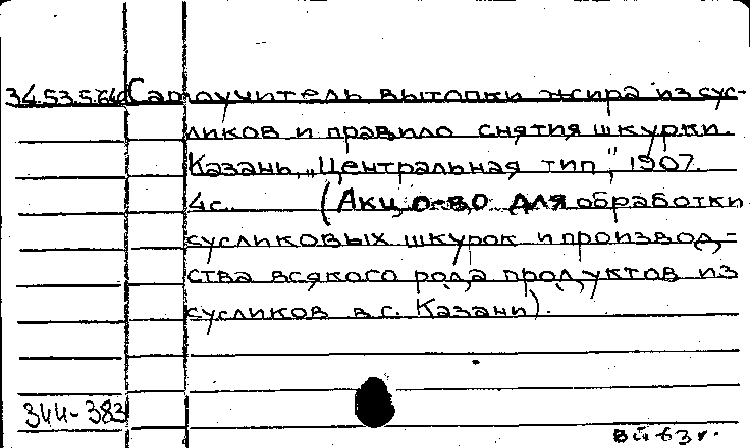 34.53.5.640 Самоучитель вытопки жира из сус-
ликов и правило снятия шкурки.
Казань, "Центральная тип", 1907.
4с. (Акц. о-во для обработки
сусликовых шкурок и производ-
ства всякого рода продуктов из
сусликов в с. Казани).
344-383